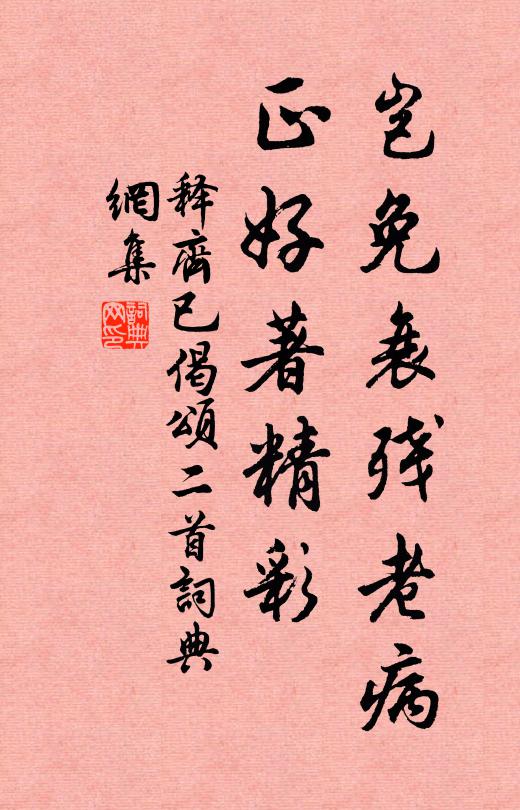 岂免衰残老病
正好著精彩
释齋已偈頌二首詞典
網集
詞典
网印